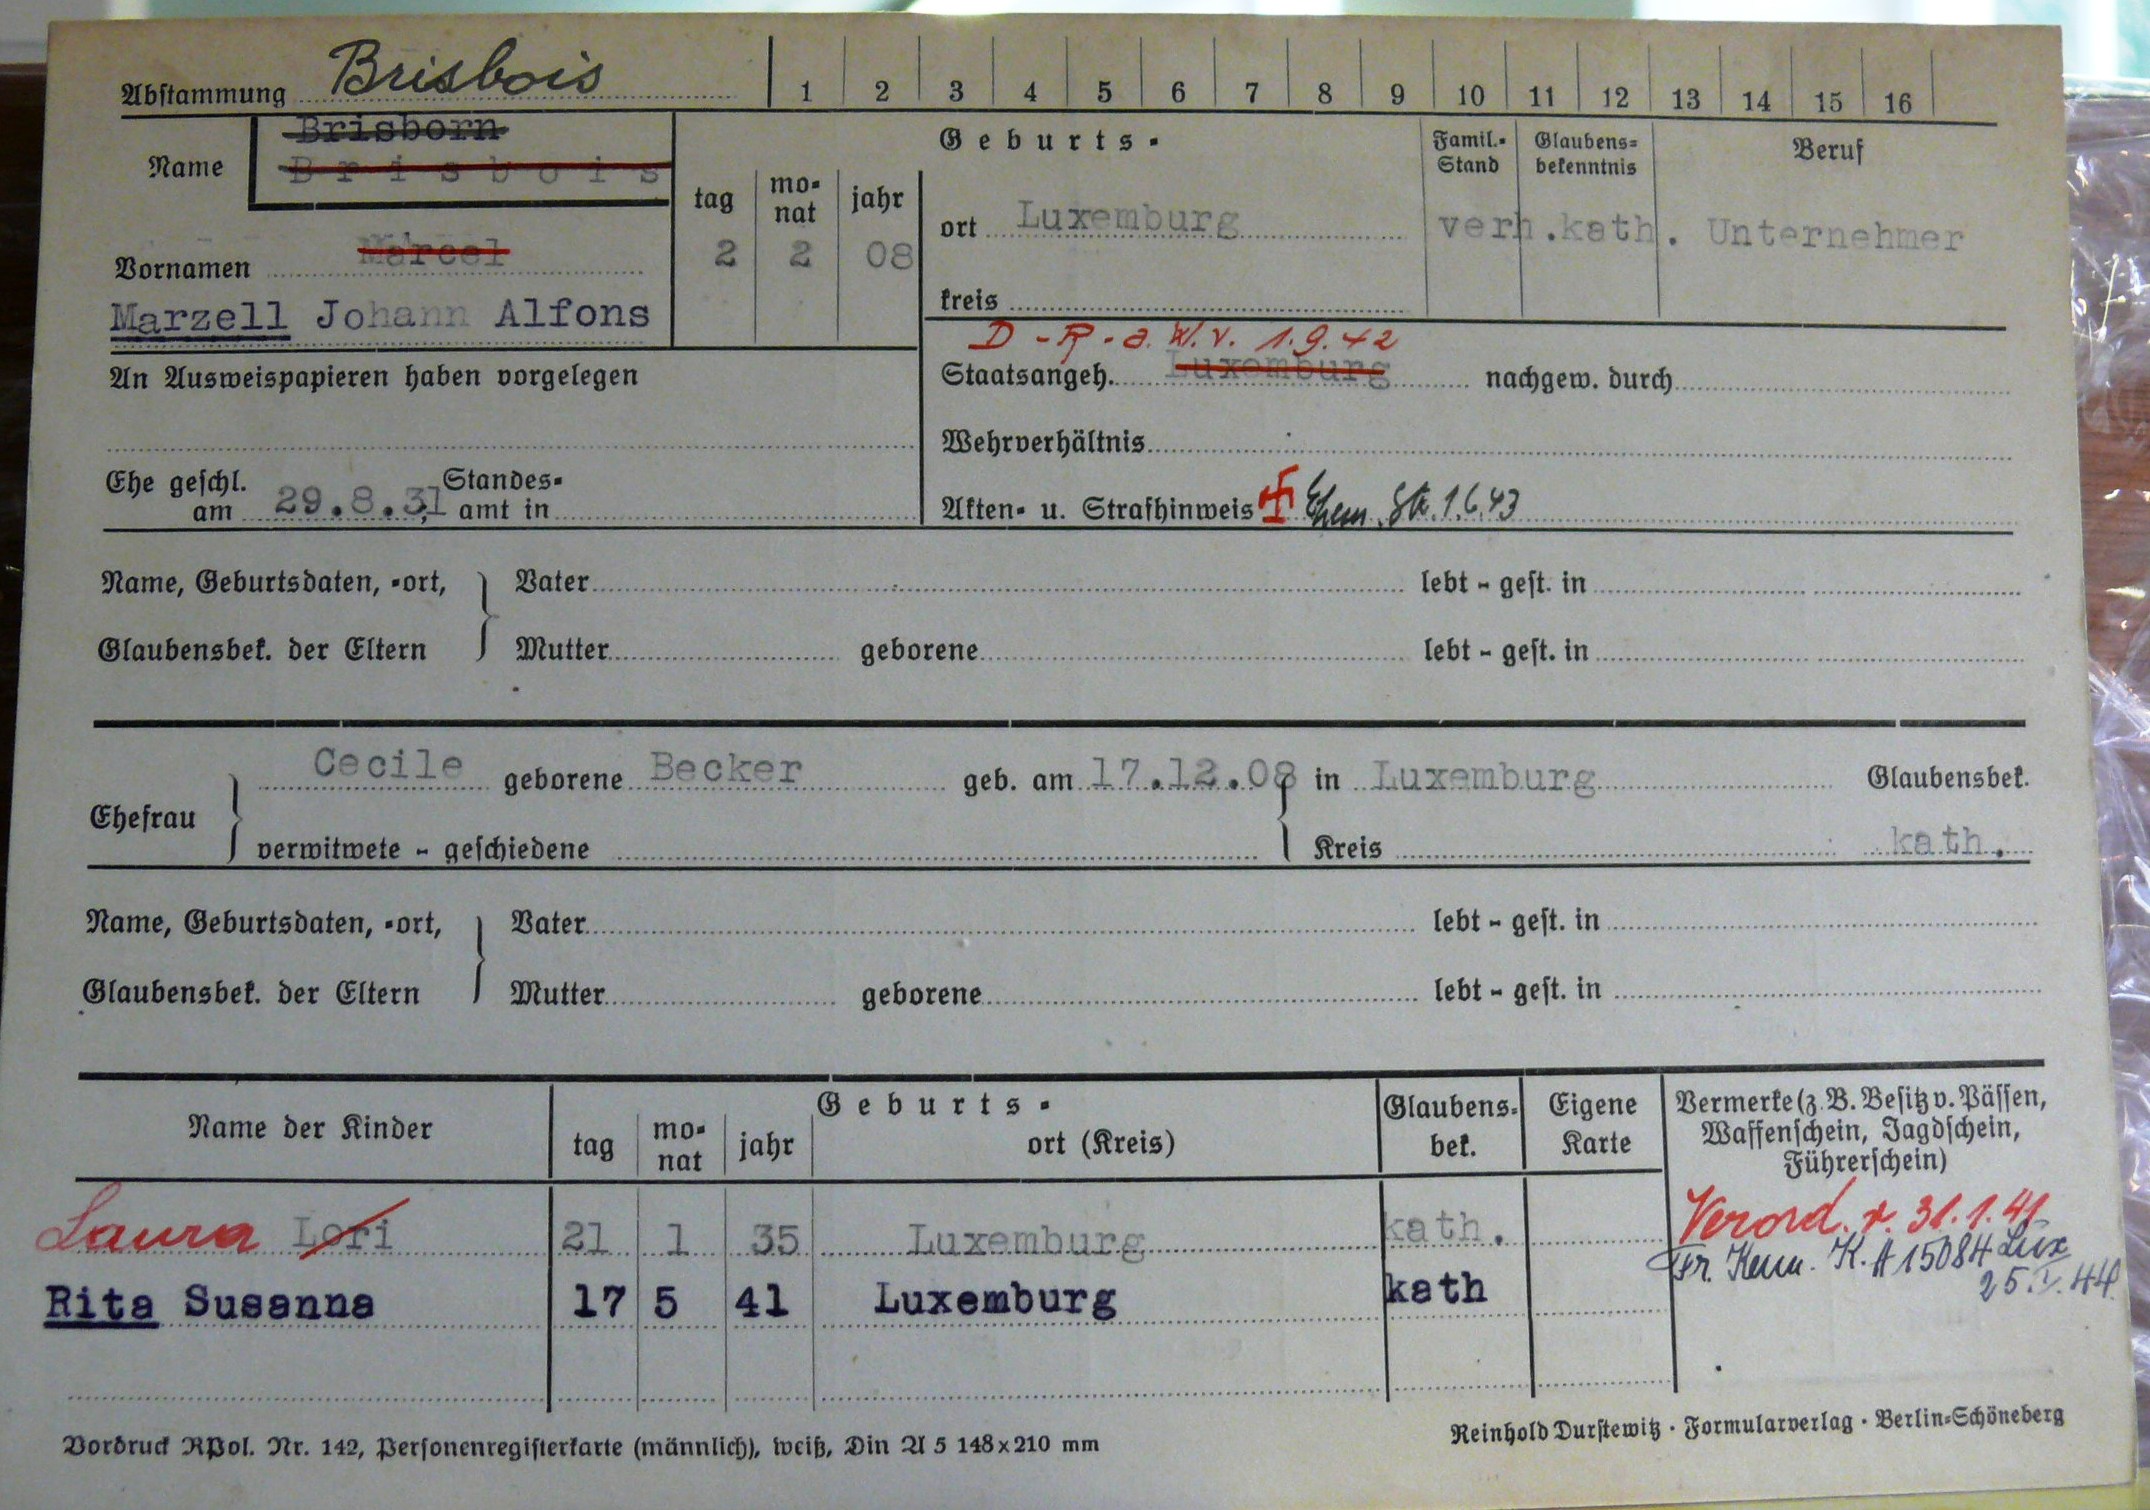 Abstammung Brisbois 1 2 3 4 5 6 7 8 9 10 11 12 13 14 15 16
Name Brisborn
Brisbois
Geburts-
tag monat jahr
Famil.-Stand Glaubens-bekenntnis Beruf
ort Luxemburg verh. kath. Unternehmer
Vornamen Marcel 2 2 08
kreis
Marzell Johann Alfons
D-R-a. W. v. 1.9.42
An Ausweispapieren haben vorgelegen
Staatsangeh. Luxemburg nachgew. durch
Wehrverhältnis
Ehe geschl. am 29.8.31 Standes-amt in
Akten- u. Strafhinweis 1.6.43
Name, Geburtsdaten, -ort, Vater lebt - gest. in
Glaubensbek. der Eltern Mutter geborene lebt - gest. in
Cecile geborene Becker geb. am 17.12.08 in Luxemburg Glaubensbek.
Ehefrau
verwitwete - geschiedene Kreis kath.
Name, Geburtsdaten, -ort, Vater lebt - gest. in
Glaubensbek. der Eltern Mutter geborene lebt - gest. in
Name der Kinder Geburts- Glaubens-bek. Eigene Karte Vermerke (z. B. Besitz v. Pässen,
tag monat jahr ort (Kreis) Waffenschein, Jagdschein,
Führerschein)
Laura Lori 21 1 35 Luxemburg kath. Verord. v. 31.1.41
Fr. Kenn. K. A 15084 Lux
25.V.44
Rita Susanna 17 5 41 Luxemburg kath
Vordruck RPol. Nr. 142, Personenregisterkarte (männlich), weiß, Din A 5 148x210 mm
Reinhold Durstewitz · Formularverlag · Berlin-Schöneberg